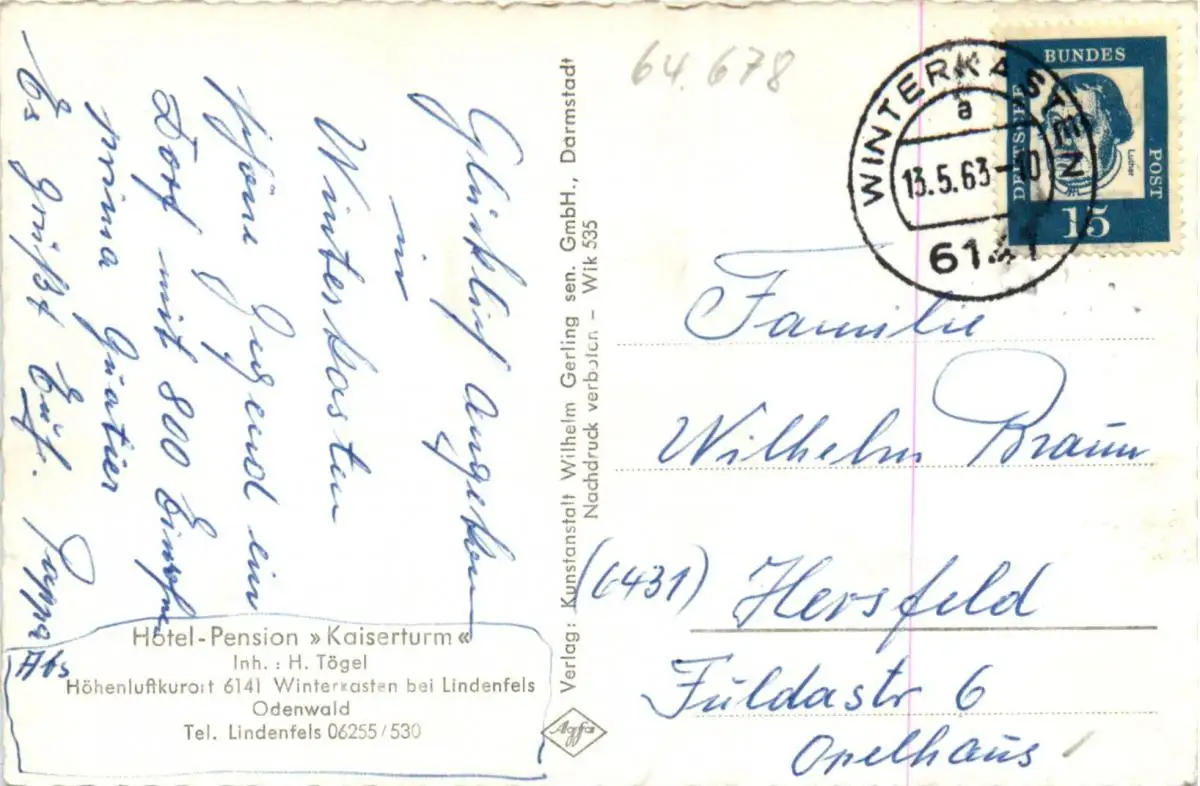 Glücklich angekommen
in
Winterkasten
schöne Gegend ein
Dorf mit 800 Einwohner
prima Quatier
Es grüßt Euch. Pappa
Abs
Hotel-Pension »Kaiserturm«
Inh.: H. Tögel
Höhenluftkurort 6141 Winterkasten bei Lindenfels
Odenwald
Tel. Lindenfels 06255/530
Verlag: Kunstanstalt Wilhelm Gerling sen. GmbH., Darmstadt
Nachdruck verboten – Wik 535
Agfa
64.678
WINTERKASTEN
a
13.5.63-10
6141
DEUTSCHE BUNDES POST
Luther
15
Familie
Wilhelm Braun
(6431) Hersfeld
Fuldastr 6
Opelhaus